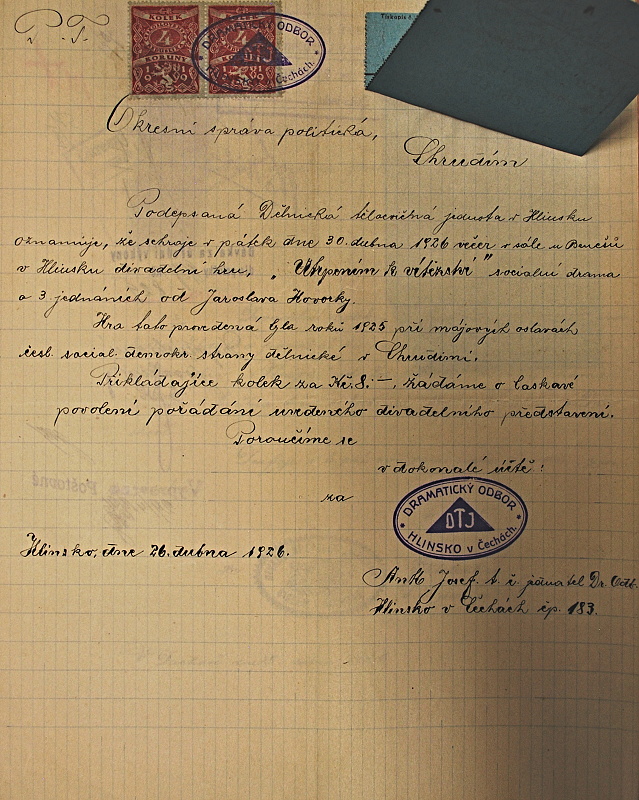 P. T.
KOLEK
4
KORUNY
KOLEK
4
KORUNY
DRAMATICKÝ ODBOR
DTJ
Čechách.
Tiskopis č
Okresní správa politická,
Chrudim
Podepsaná Dělnická tělocvičná jednota v Hlinsku
oznamuje, že sehraje v pátek dne 30. dubna 1926 večer v sále u Benešů
v Hlinsku divadelní hru, „Utrpením k vítězství" socialní drama
o 3. jednáních od Jaroslava Hovorky.
Hra tato provedená byla roků 1925 při májových oslavách
česl. social. demokr. strany dělnické v Chrudimi.
Přikládajíce kolek za Kč. 8.–, žádáme o laskavé
povolení pořádání uvedeného divadelního představení.
Poroučíme se
v dokonalé úctě:
za
DRAMATICKÝ ODBOR
DTJ
HLINSKO v Čechách.
Hlinsko, dne 26. dubna 1926.
Josef t. č. jednatel Dr. Odb.
Hlinsko v Čechách čp. 183.